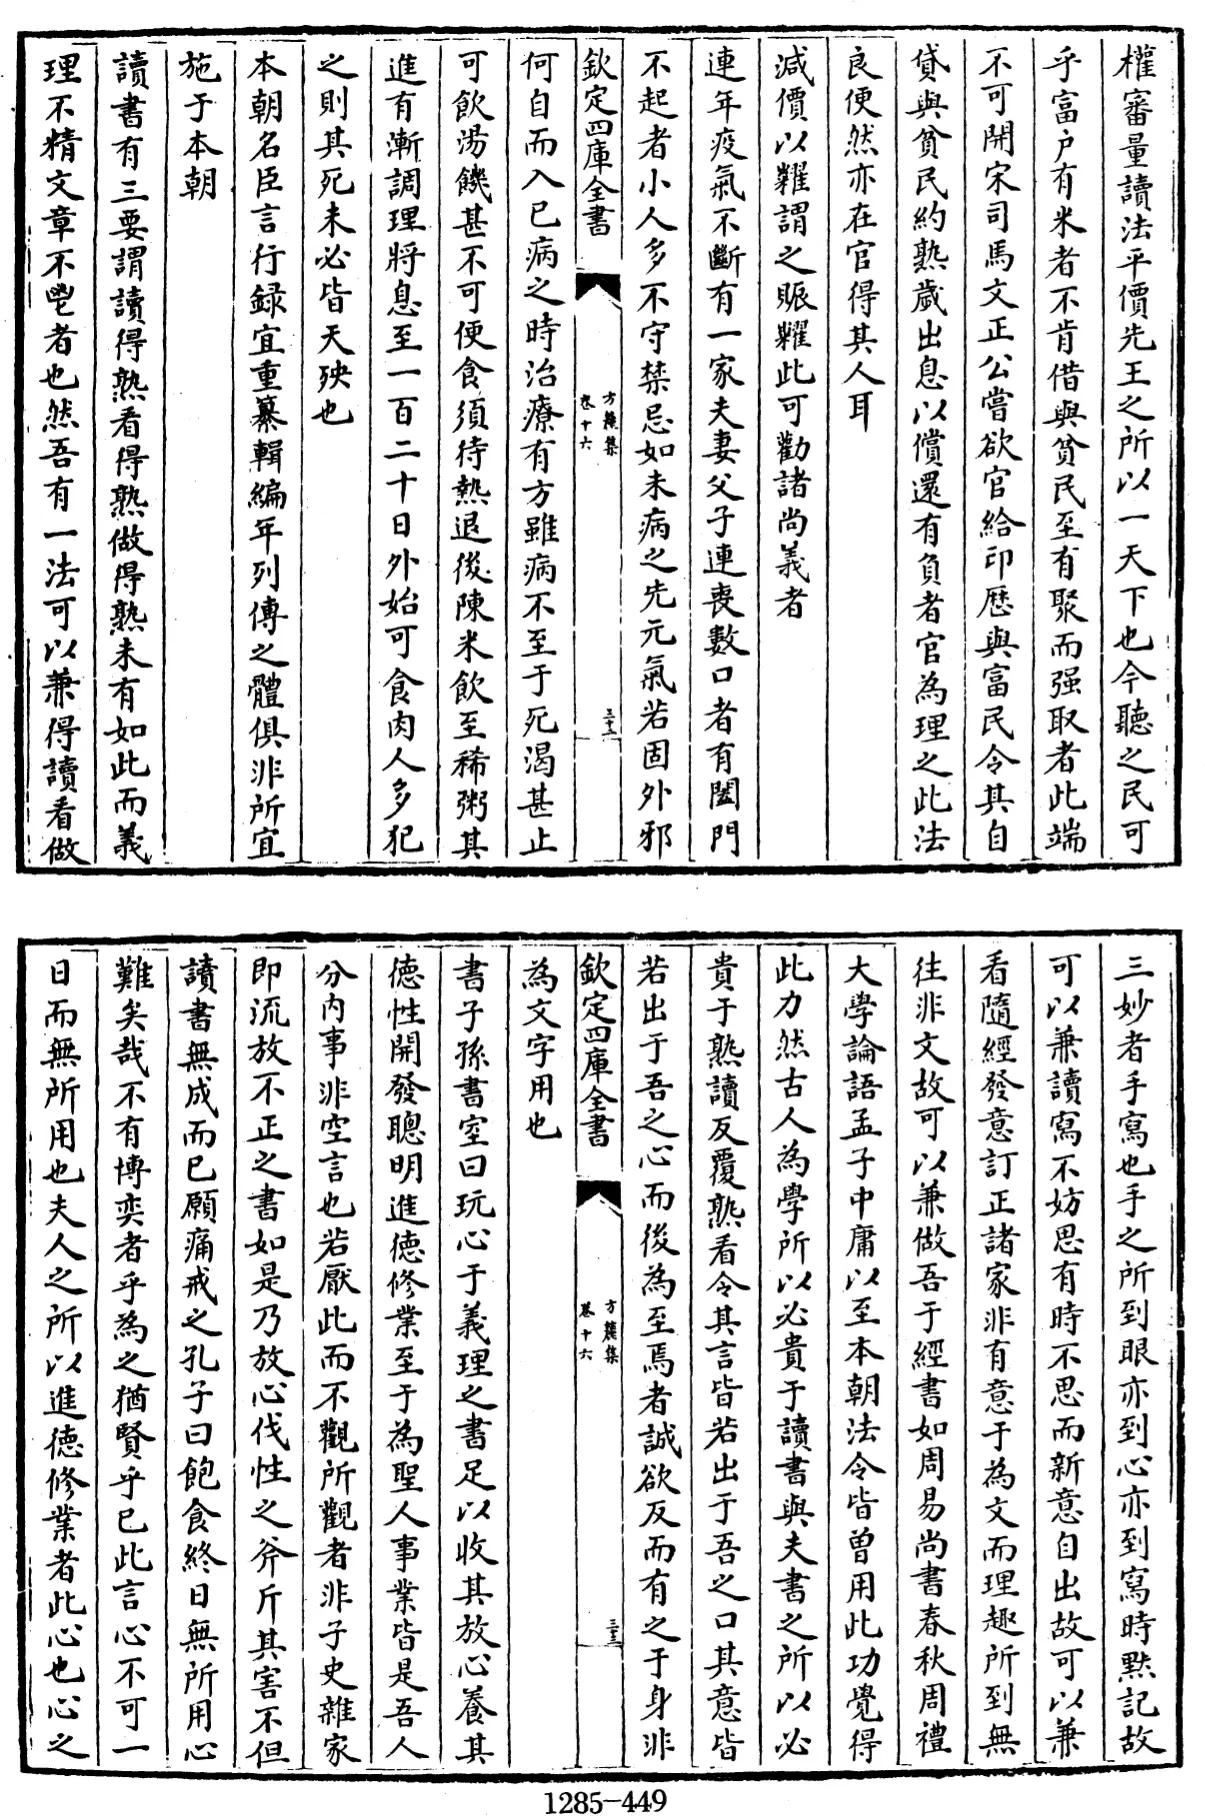 權審量讀法平價先王之所以一天下也今聽之民可
乎富户有米者不肯借與貧民至有聚而强取者此端
不可開宋司馬文正公嘗欲官給印歴與富民令其自
貸與貧民約熟歲出息以償還有負者官為理之此法
良便然亦在官得其人耳
減價以糶謂之賑糶此可勸諸尚義者
連年疫氣不斷有一家夫妻父子連喪數口者有闔門
不起者小人多不守禁忌如未病之先元氣若固外邪
欽定四庫全書
方麓集
卷十六
三十二
何自而入已病之時治療有方雖病不至于死渴甚止
可飲湯饑甚不可便食須待熱退後陳米飲至稀粥其
進有漸調理將息至一百二十日外始可食肉人多犯
之則其死未必皆天殃也
本朝名臣言行録宜重纂輯編年列傳之體俱非所宜
施于本朝
讀書有三要謂讀得熟看得熟做得熟未有如此而義
理不精文章不鬯者也然吾有一法可以兼得讀看做
三妙者手寫也手之所到眼亦到心亦到寫時黙記故
可以兼讀寫不妨思有時不思而新意自出故可以兼
看隨經發意訂正諸家非有意于為文而理趣所到無
往非文故可以兼做吾于經書如周易尚書春秋周禮
大學論語孟子中庸以至本朝法令皆曽用此功覺得
此力然古人為學所以必貴于讀書與夫書之所以必
貴于熟讀反覆熟看令其言皆若出于吾之口其意皆
若出于吾之心而後為至焉者誠欲反而有之于身非
欽定四庫全書
方麓集
卷十六
三十三
為文字用也
書子孫書室曰玩心于義理之書足以收其放心養其
徳性開發聰明進徳修業至于為聖人事業皆是吾人
分内事非空言也若厭此而不觀所觀者非子史雜家
即流放不正之書如是乃放心伐性之斧斤其害不但
讀書無成而已願痛戒之孔子曰飽食終日無所用心
難矣哉不有博奕者乎為之猶賢乎已此言心不可一
日而無所用也夫人之所以進徳修業者此心也心之
1285-449